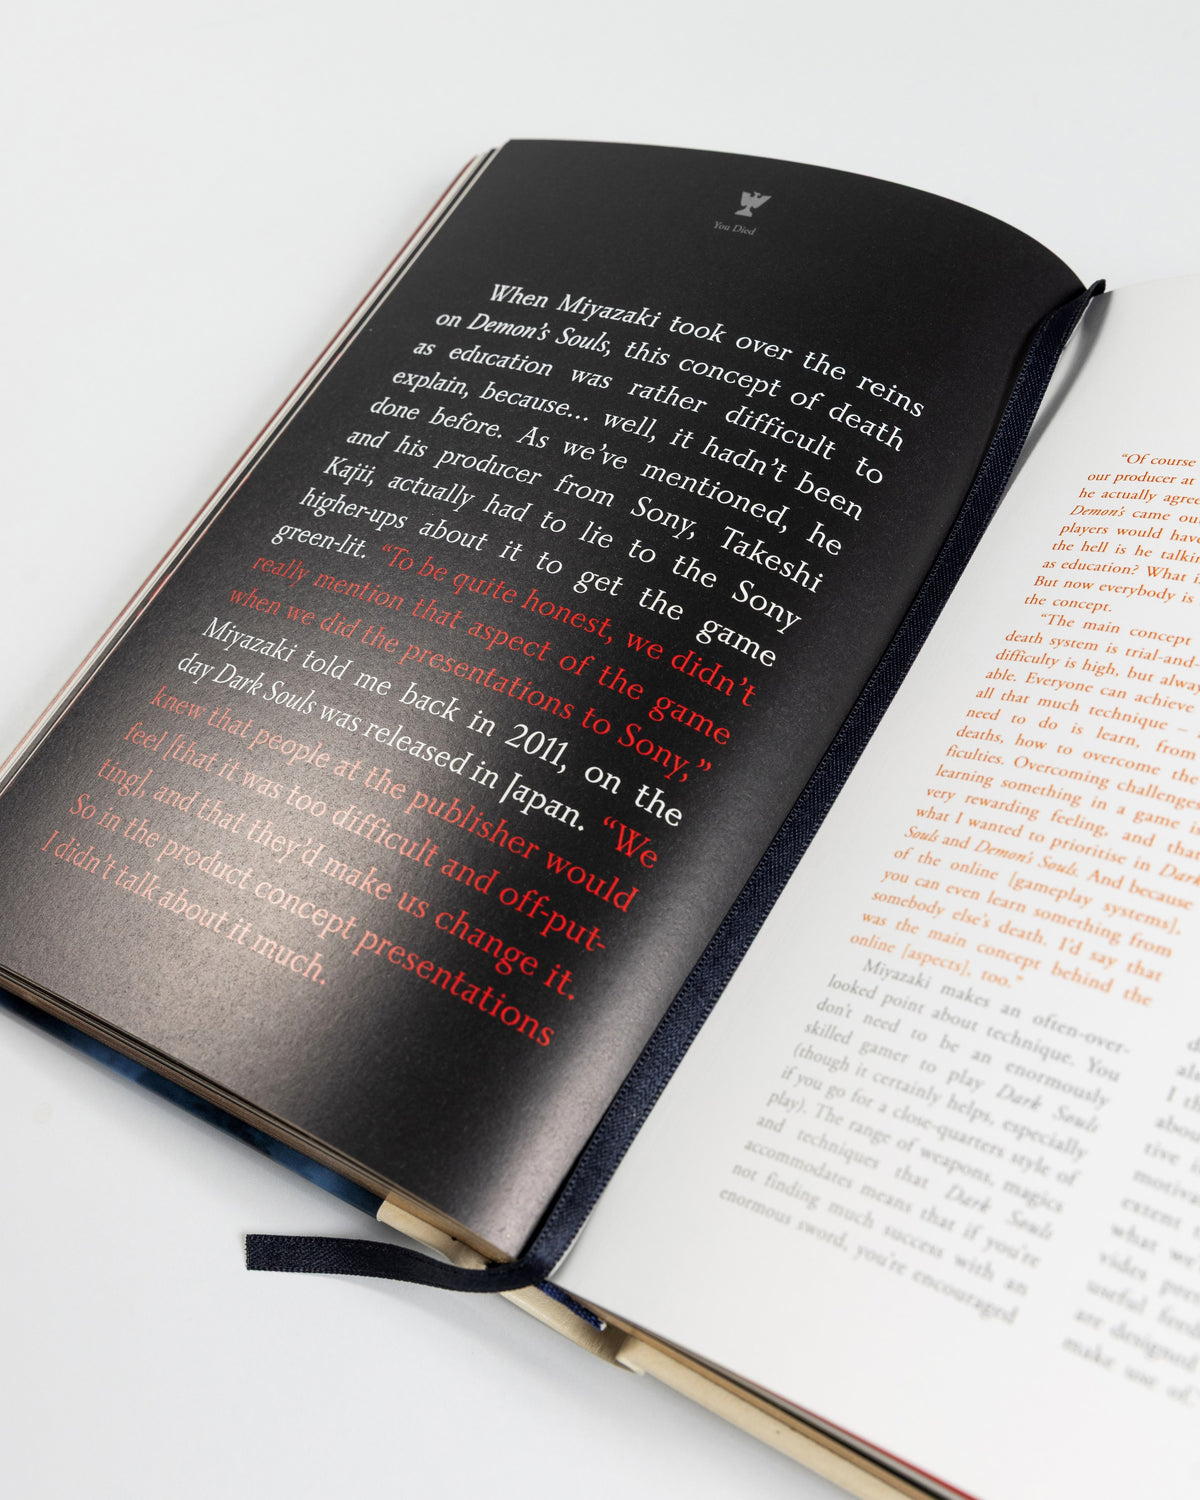 You Died
When Miyazaki took over the reins
on Demon's Souls, this concept of death
as education was rather difficult to
explain, because... well, it hadn't been
done before. As we've mentioned, he
and his producer from Sony, Takeshi
Kajii, actually had to lie to the Sony
higher-ups about it to get the game
green-lit. “To be quite honest, we didn't
really mention that aspect of the game
when we did the presentations to Sony,”
Miyazaki told me back in 2011, on the
day Dark Souls was released in Japan. “We
knew that people at the publisher would
feel [that it was too difficult and off-put-
ting], and that they'd make us change it.
So in the product concept presentations
I didn't talk about it much.
“Of course
our producer at
he actually agre
Demon's came ou
players would have
the hell is he talkin
as education? What i
But now everybody is
the concept.
“The main concept
death system is trial-and-
difficulty is high, but alway
able. Everyone can achieve
all that much technique –
need to do is learn, from
deaths, how to overcome the
ficulties. Overcoming challenges
learning something in a game i
very rewarding feeling, and that
what I wanted to prioritise in Dark
Souls and Demon's Souls. And because
of the online [gameplay systems],
you can even learn something from
somebody else's death. I'd say that
was the main concept behind the
online [aspects], too.”
Miyazaki makes an often-over-
looked point about technique. You
don't need to be an enormously
skilled gamer to play Dark Souls
(though it certainly helps, especially
if you go for a close-quarters style of
play). The range of weapons, magics
and techniques that Dark Souls
accommodates means that if you're
not finding much success with an
enormous sword, you're encouraged
d
al
I th
abou
tive i
motiva
extent
what we'
vides pre
useful feed
are designed
make use of.